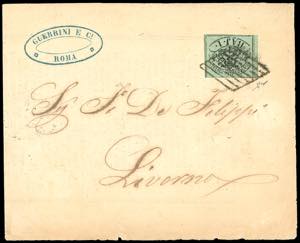 GUERRINI E C!
ROMA
Sig. F. De Filippi
Livorno